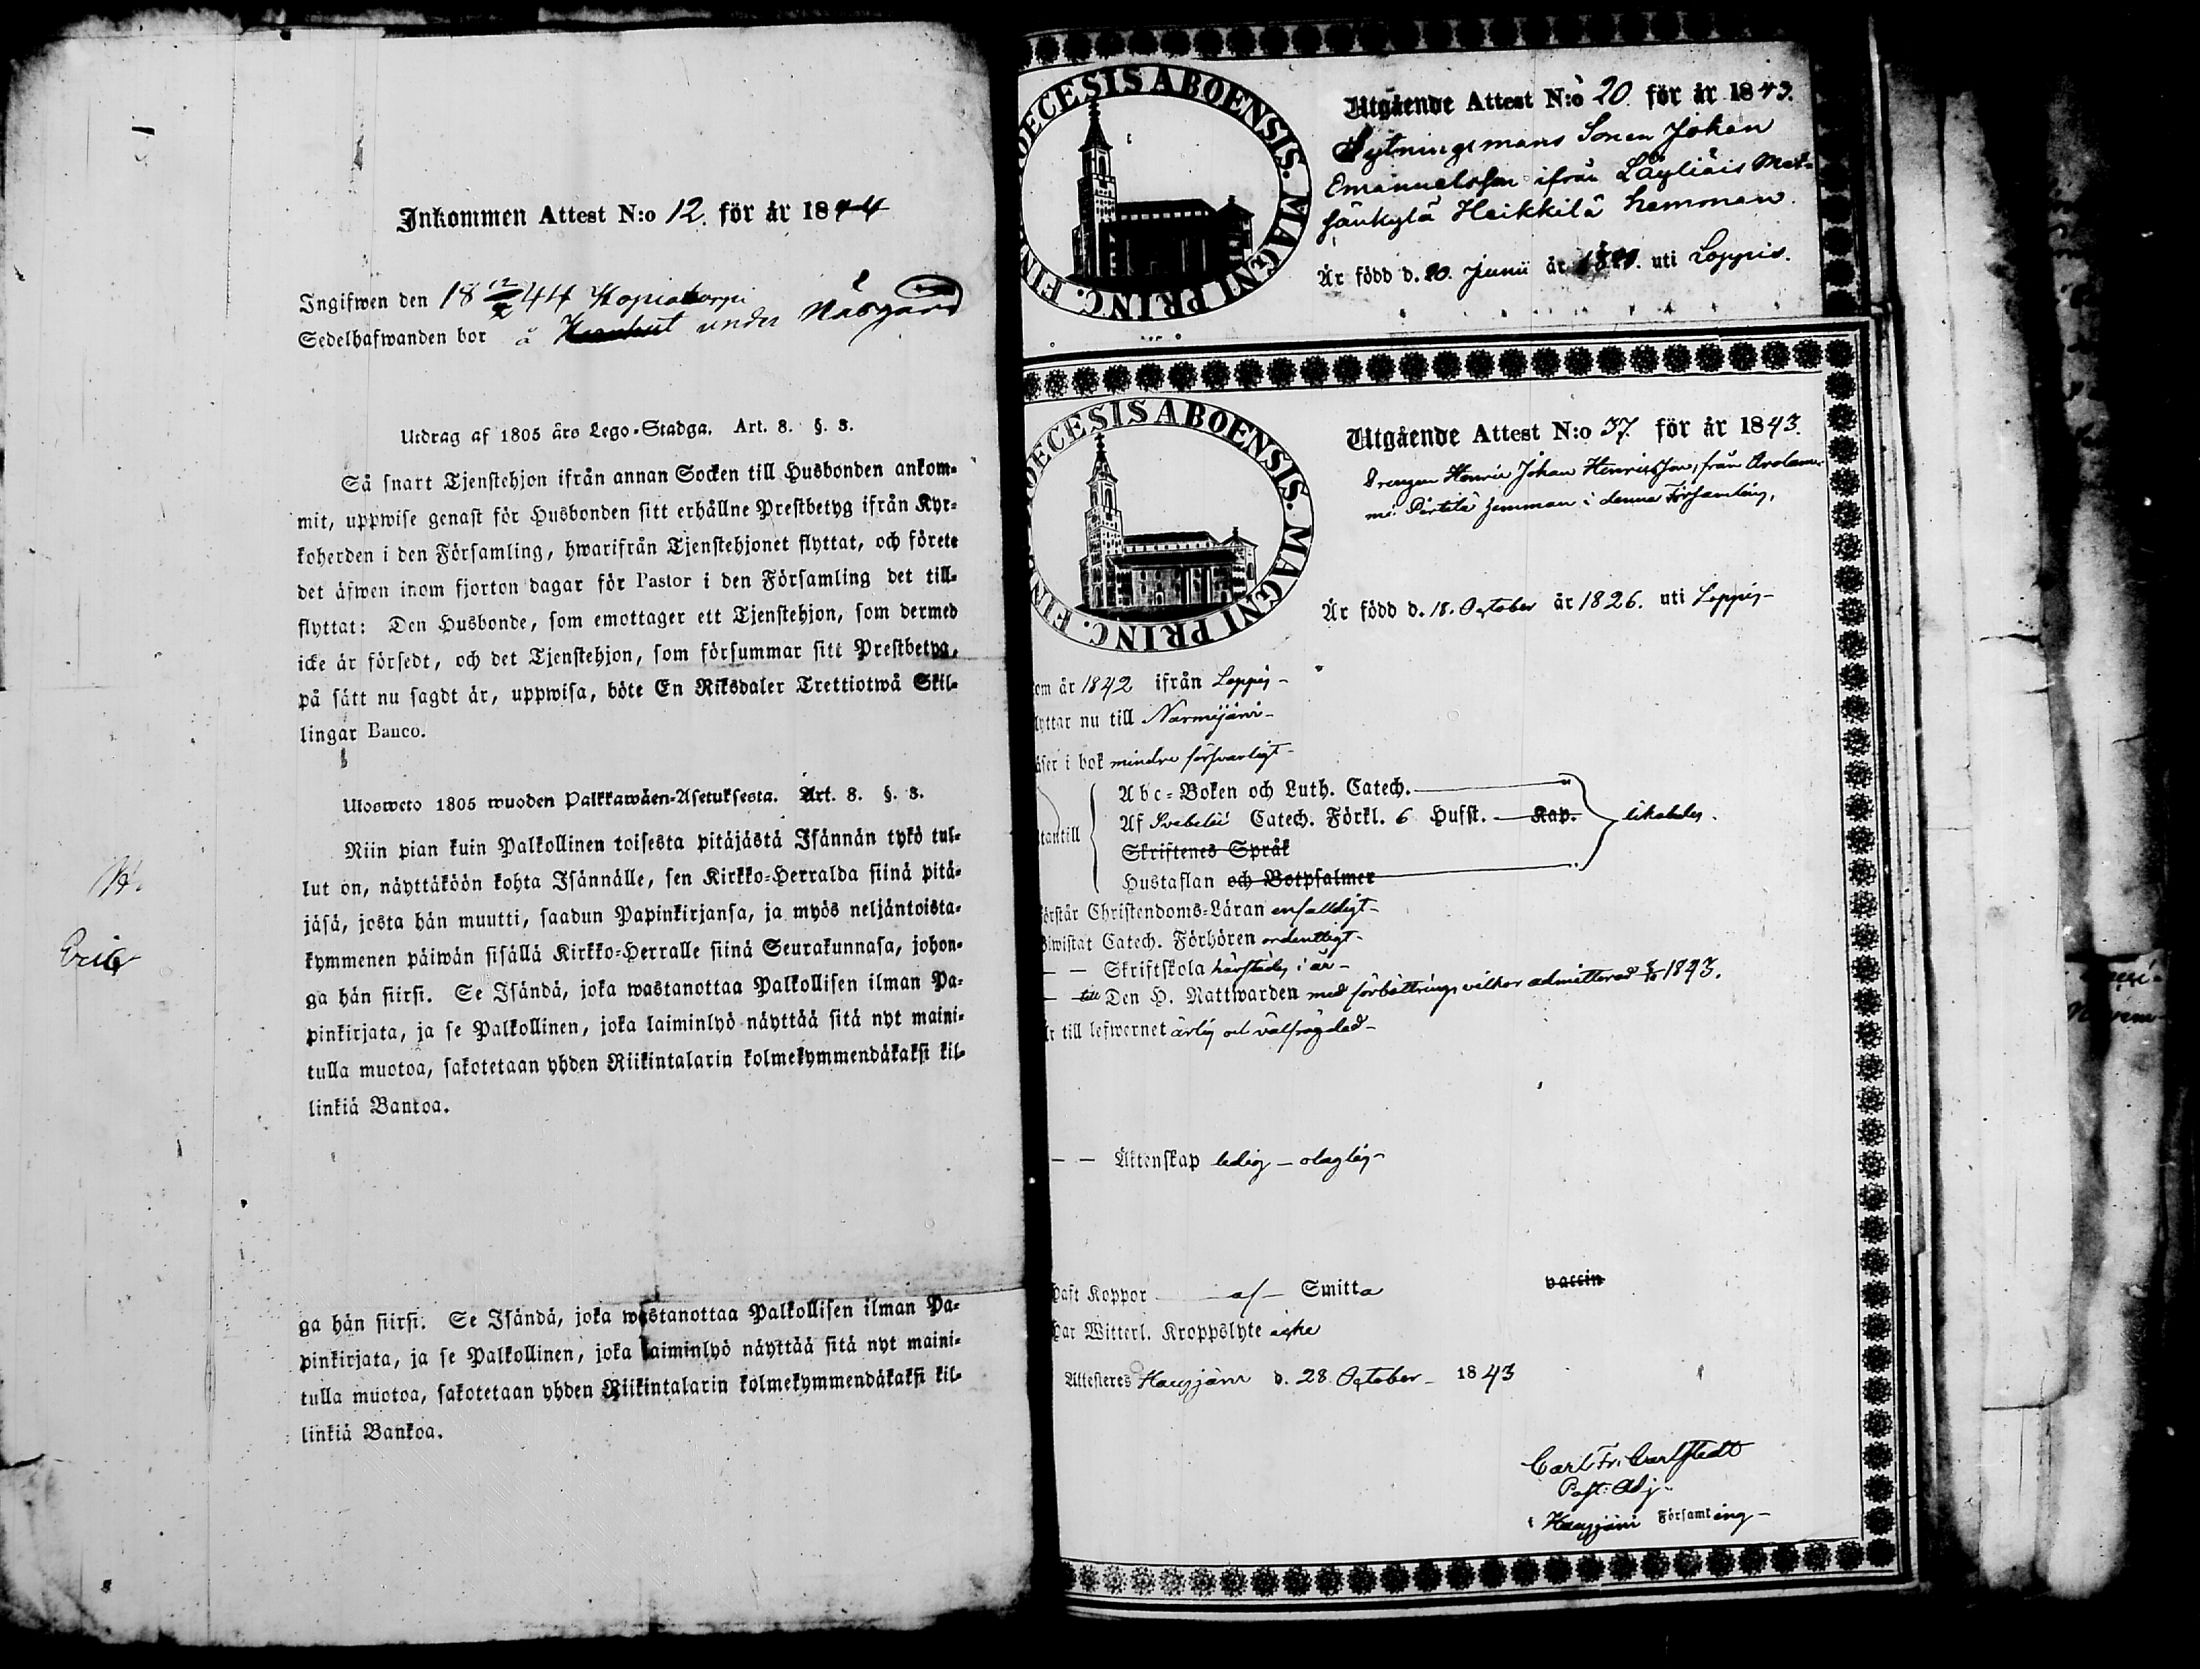 Inkommen Attest N:o 12. för år 1844
Ingifwen den 18 12/2 44 Kopiokorpi
Sedelhafwanden bor å under Näsgård
Utdrag af 1805 års Lego-Stadga. Art. 8. §. 3.
Så snart Tjenstehjon ifrån annan Socken till Husbonden ankom-
mit, uppwise genast för Husbonden sitt erhållne Prestbetyg ifrån Kyr-
koherden i den Församling, hwarifrån Tjenstehjonet flyttat, och förete
det äfwen inom fjorton dagar för Pastor i den Församling det till-
flyttat: Den Husbonde, som emottager ett Tjenstehjon, som dermed
icke är försedt, och det Tjenstehjon, som försummar sitt Prestbetyg,
på sätt nu sagdt är, uppwisa, böte En Riksdaler Trettiotwå Skil-
lingar Banco.
Ulosweto 1805 wuoden Palkkawäen-Asetuksesta. Art. 8. §. 3.
Niin pian kuin Palkollinen toisesta pitäjästä Isännän tykö tul-
lut on, näyttäköön kohta Isännälle, sen Kirkko-Herralda siinä pitä-
jäsä, josta hän muutti, saadun Papinkirjansa, ja myös neljäntoista-
kymmenen päiwän sisällä Kirkko-Herralle siinä Seurakunnasa, johon-
ga hän siirsi. Se Isändä, joka wastanottaa Palkollisen ilman Pa-
pinkirjata, ja se Palkollinen, joka laiminlyö näyttää sitä nyt maini-
tulla muotoa, sakotetaan yhden Riikintalarin kolmekymmendäkaksi kil-
linkiä Bankoa.
Eric
ga hän siirsi. Se Isändä, joka wastanottaa Palkollisen ilman Pa-
pinkirjata, ja se Palkollinen, joka laiminlyö näyttää sitä nyt maini-
tulla muotoa, sakotetaan yhden Riikintalarin kolmekymmendäkaksi kil-
linkiä Bankoa.
OECESIS ABOENSIS. MAGNI PRINC. FIN
Utgående Attest N:o 20. för år 1843.
Sytningsmans Sonen Johan
Emanuelsson ifrån Läyliäis Met-
sänkylä Heikkilä hemman.
Är född d. 20. Junii år uti Loppis.
OECESIS ABOENSIS. MAGNI PRINC. FIN
Utgående Attest N:o 37. för år 1843.
Drengen Henric Johan Henricsson, från Arolam-
mi Pertilä hemman i denna Församling,
Är född d. 18. October år 1826. uti Loppis-
om år 1842 ifrån Loppis-
lyttar nu till Nurmijärvi-
äser i bok mindre försvarligt-
Abc-Boken och Luth. Catech.
tantill Af Svebelii Catech. Förkl. 6 Hufst. Kap. likaledes.
Skriftenes Språk
Hustaflan och Botpsalmer
örstår Christendoms-Läran enfalldigt-
Biwistat Catech. Förhören ordentligt-
— — Skriftskola härstädes i år-
— till Den H. Nattwarden med förbättrings vilkor admitterad 1843.
r till lefwernet ärlig och välfrägdad-
— — Äktenskap ledig - olaglig-
haft Koppor af Smitta vaccin
har Witterl. Kroppslyte icke
Attesteres Hausjärvi d. 28. October- 1843
Carl Fr. Carlstedt
Past: Adj:
i Hausjärvi Församling-